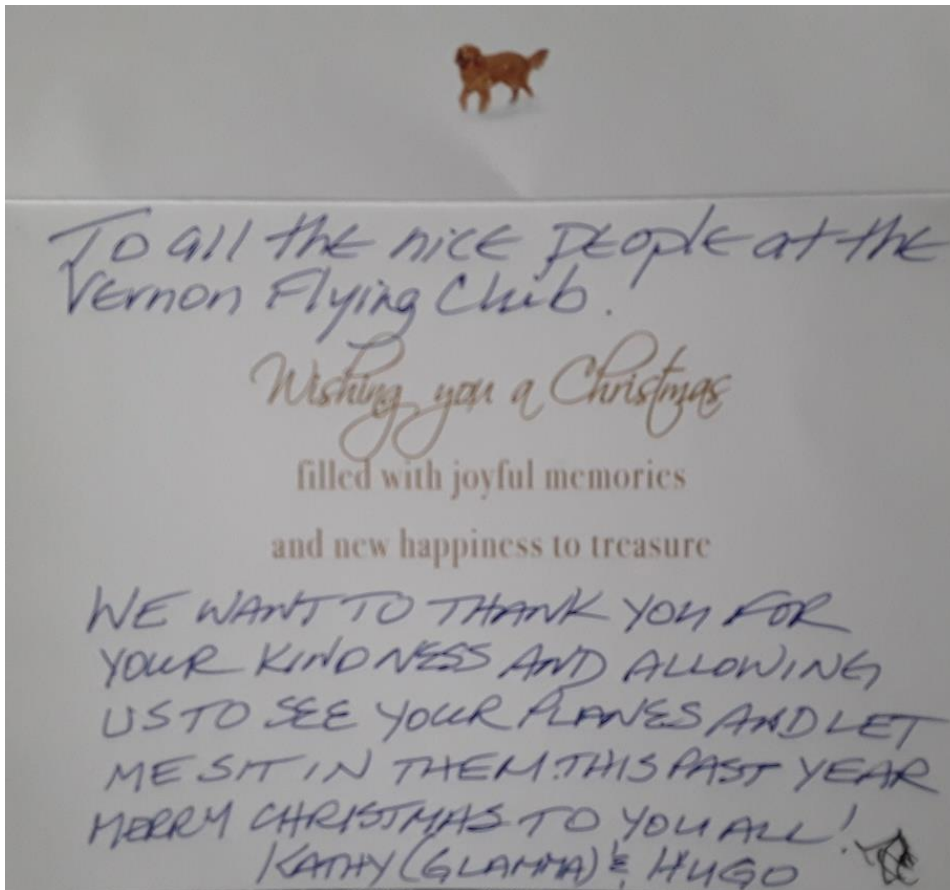 To all the nice people at the
Vernon Flying Club!
Wishing you a Christmas
filled with joyful memories
and new happiness to treasure
WE WANT TO THANK YOU FOR
YOUR KINDNESS AND ALLOWING
US TO SEE YOUR PLANES AND LET
ME SIT IN THEM THIS PAST YEAR
MERRY CHRISTMAS TO YOU ALL!
KATHY (GLAMMA) & HUGO